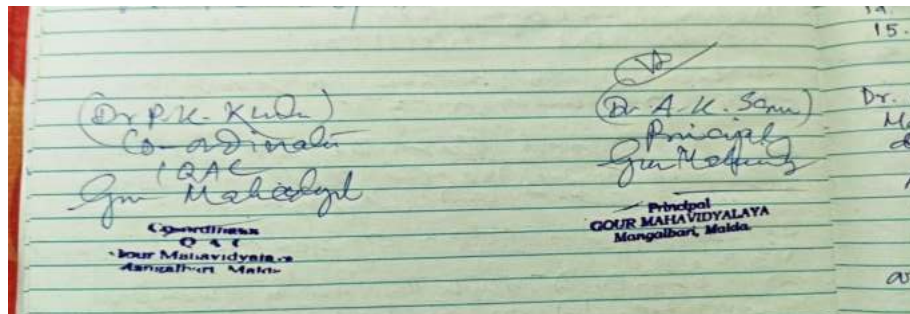 14.
15.
(Dr P.K. Kundu)
Co-ordinator
IQAC
Gour Mahavidyalaya
Coordinator
I Q A C
Gour Mahavidyalaya
Mangalbari Malda
(Dr A.K. Sarkar)
Principal
Gour Mahavidyalaya
Principal
GOUR MAHAVIDYALAYA
Mangalbari, Malda.
Dr.